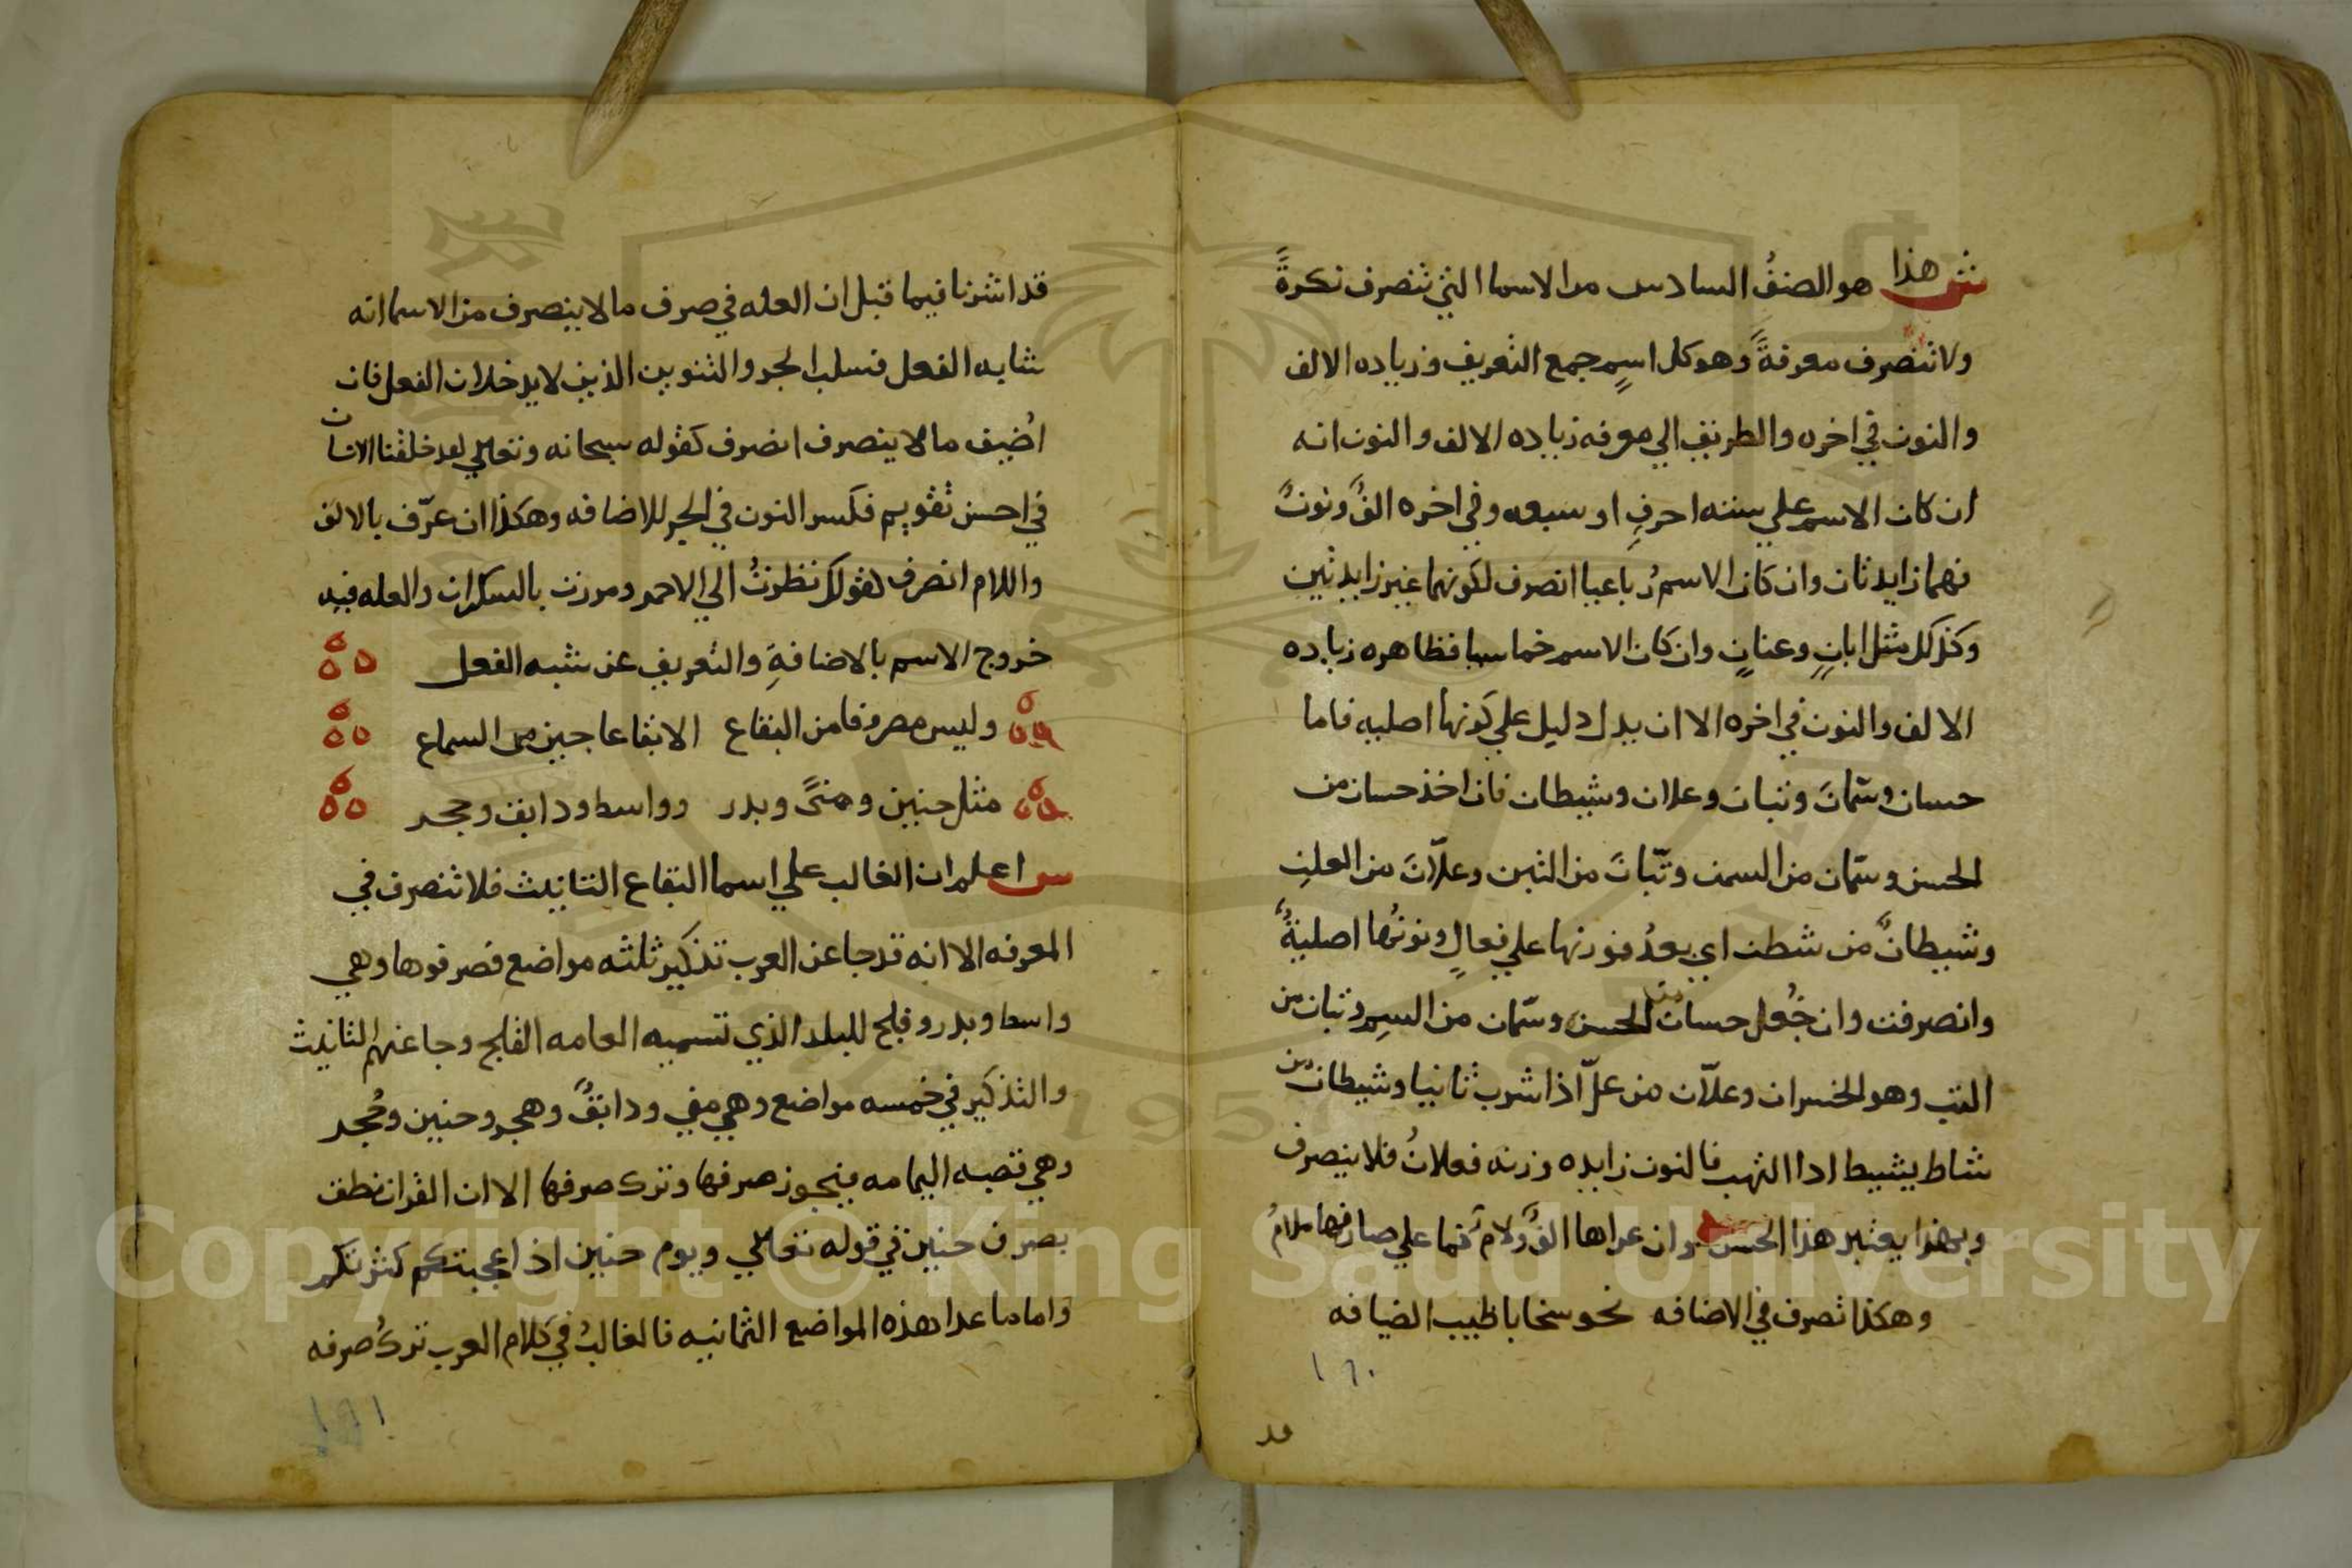 ش هذا هو الصنفُ السادس من الاسما التي تنصرف نكرةً
ولا تنصرف معرفةً وهو كل اسمٍ جمع التعريف وزياده الالف
والنون في اخره والطريق الي معرفه زياده الالف والنون انه
ان كان الاسم علي سته احرفٍ او سبعه وفي اخره الفٌ ونونٌ
فهما زايدتان وان كان الاسم رُباعيا انصرف لكونهما غير زايدتين
وكذلك مثل ابانٍ وعنانٍ وان كان الاسم خماسيا فظاهره زياده
الالف والنون في اخره الا ان يدل دليل علي كونها اصليه فاما
حسان وسمّانَ وتبان وعلان وشيطان فان اخذ حسان من
الحسن وسمّان من السمن وتبّانَ من التبن وعلّانَ من العلن
وشيطانٌ من شطن اي بعدُ فوزنها علي فعالٍ ونونُها اصليةٌ
وانصرفت وان جُعل حسان من الحسن وسمّان من السم وتبان من
التب وهو الخسران وعلّان من علّ اذا شرب ثانيا وشيطان من
شاط يشيط اذا التهب فالنون زايده وزنه فعلانُ فلا ينصرف
وبهذا يعتبر هذا الجنس وان عراها الفٌ ولامٌ فما علي صارفها ملامُ
وهكذا تصرف في الاضافه نحو سخا باطيب الضيافه
١٦٠
قد
قد اشرنا فيما قبل ان العله في صرف ما لا ينصرف من الاسما انه
شابه الفعل فسلب الجر والتنوين الذين لا يدخلان الفعل فان
اضيف ما لا ينصرف انصرف كقوله سبحانه وتعالي لقد خلقنا الانسان
في احسن تقويم فكسر النون في الجر للاضافه وهكذا ان عرّف بالالف
واللام انصرف كقولك نظرتُ الي الاحمر ومررت بالسكران والعله فيه
خروج الاسم بالاضافةِ والتعريف عن شبه الفعل
وليس مصروفا من البقاع الا بقاعا جين من السماع
مثل حنين ومنيً وبدر وواسط ودابق وحجر
س اعلم ان الغالب علي اسما البقاع التانيث فلا تنصرف في
المعرفه الا انه قد جا عن العرب تذكير ثلثه مواضع فصرفوها وهي
واسط وبدر وفلج للبلد الذي تسميه العامه الفلج وجا عنهم التانيث
والتذكير في خمسه مواضع وهي مني ودابقٌ وهجر وحنين وحُجر
وهي قصبه اليمامه فيجوز صرفها وترك صرفها الا ان القران نطق
بصرف حنين في قوله تعالي ويوم حنين اذ اعجبتكم كثرتكم
واما ما عدا هذه المواضع الثمانيه فالغالبُ في كلام العرب تركُ صرفه
١٦١
Copyright © King Saud University
1957